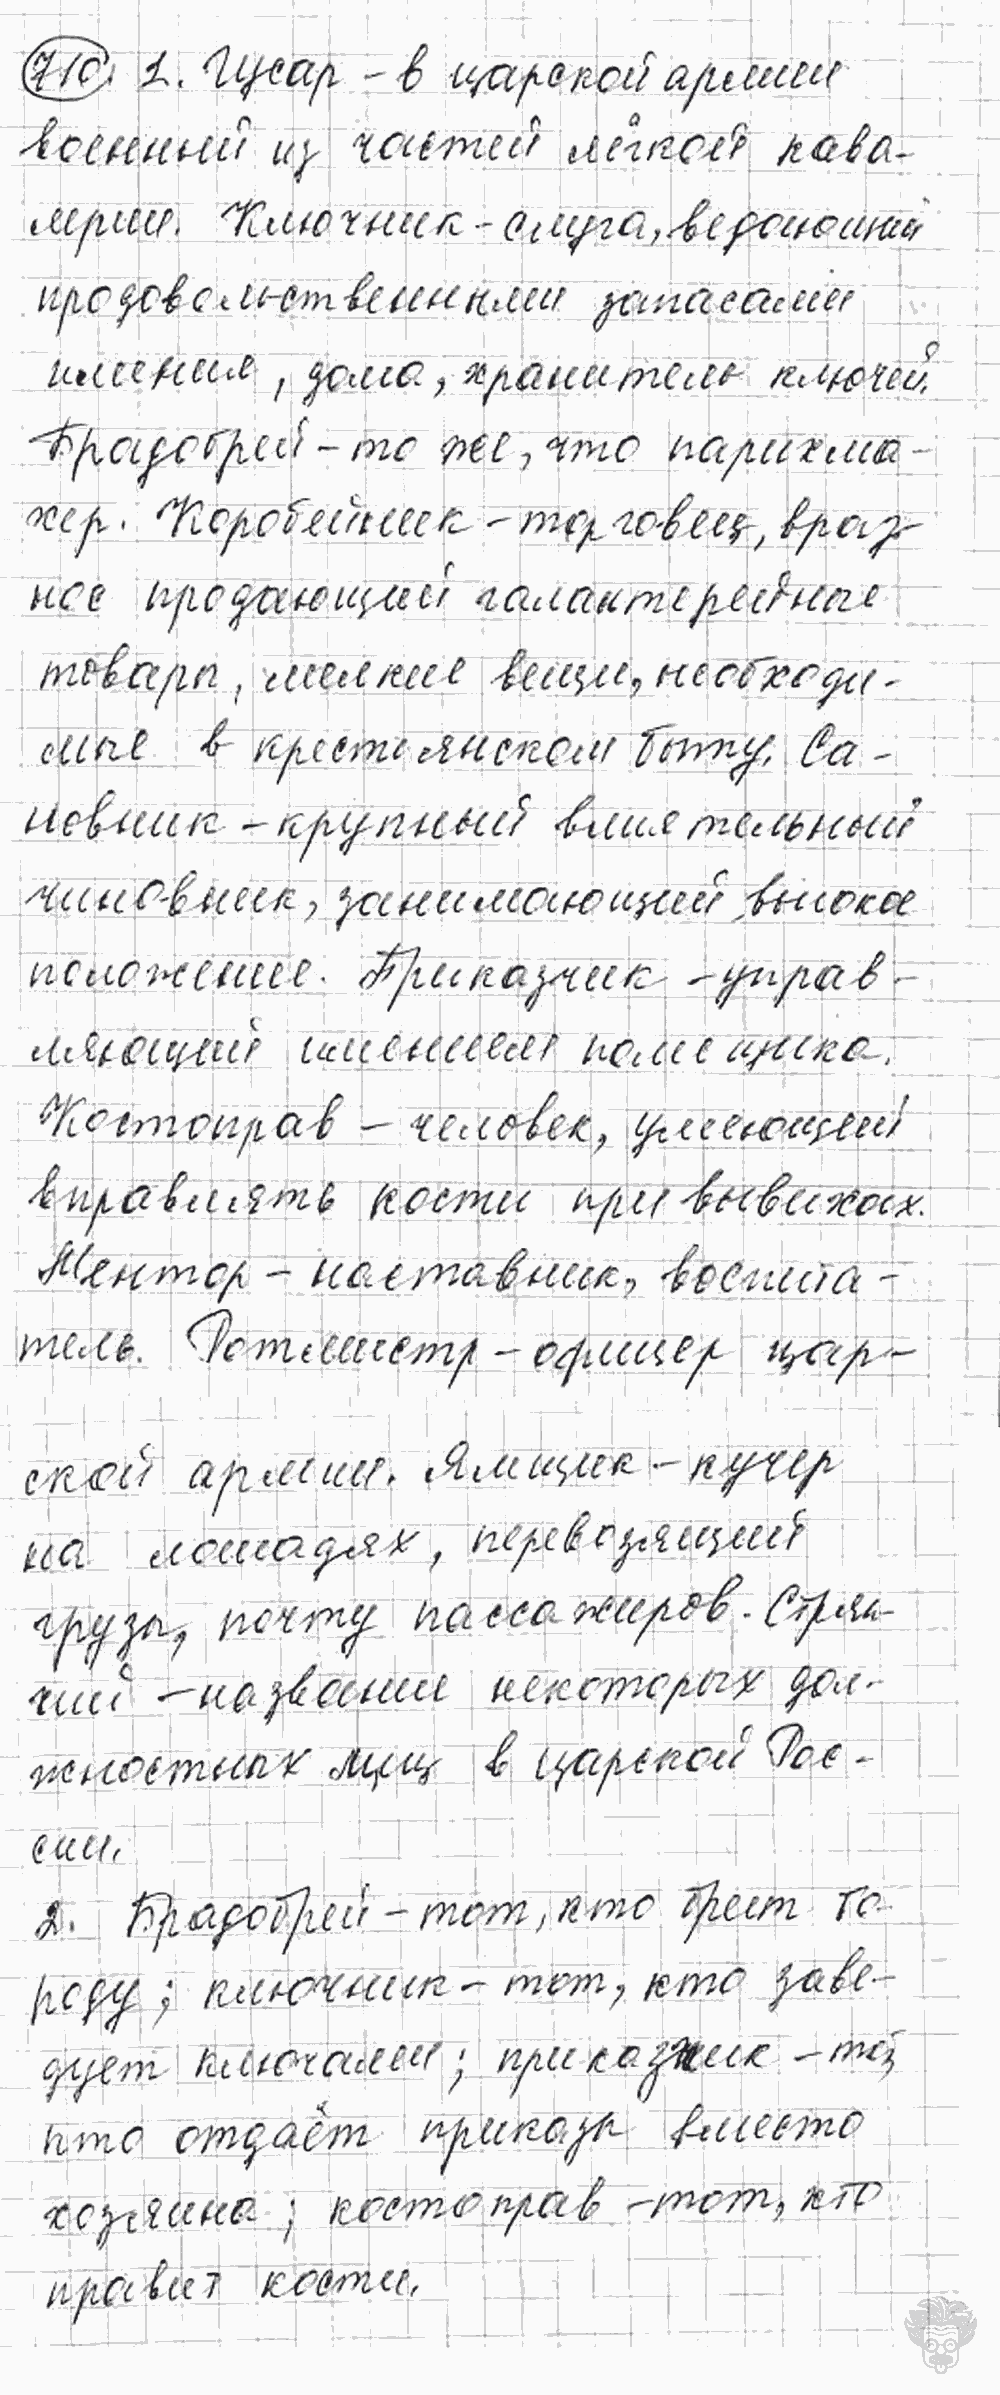 710. 1. Гусар – в царской армии
военный из частей лёгкой кава-
лерии. Ключник – слуга, ведающий
продовольственными запасами
имения, дома, хранитель ключей.
Брадобрей – то же, что парикма-
хер. Коробейник – торговец, враз-
нос продающий галантерейные
товары, мелкие вещи, необходи-
мые в крестьянском быту. Са-
новник – крупный влиятельный
чиновник, занимающий высокое
положение. Приказчик – управ-
ляющий имением помещика.
Костоправ – человек, умеющий
вправлять кости при вывихах.
Ментор – наставник, воспита-
тель. Ротмистр – офицер цар-
ской армии. Ямщик – кучер
на лошадях, перевозящий
грузы, почту пассажиров. Стряп-
чий – название некоторых дол-
жностных лиц в царской Рос-
сии.
2. Брадобрей – тот, кто бреет бо-
роду; ключник – тот, кто заве-
дует ключами; приказчик – тот,
кто отдаёт приказы вместо
хозяина; костоправ – тот, кто
правит кости.